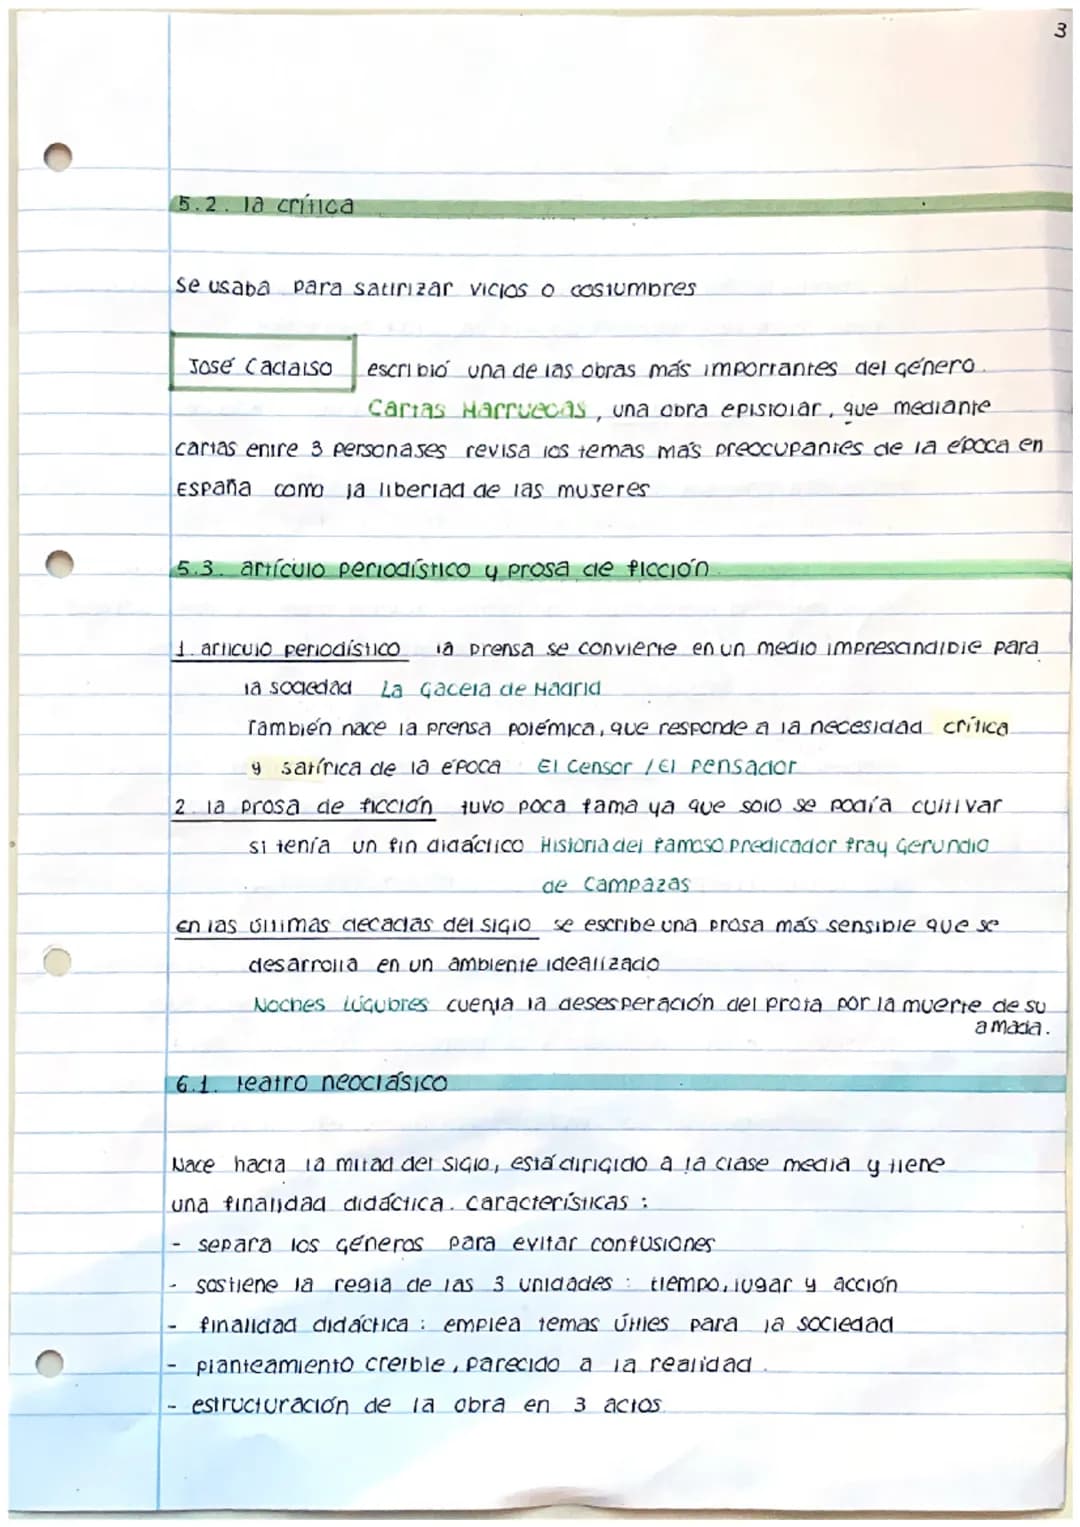 3
5.2. la crítica
Se usaba para satirizar vicios o costumbres
José Cadalso escribió una de las obras más importantes del género.
Cartas Marruecas, una obra epistolar, que mediante
cartas entre 3 personajes revisa los temas más preocupantes de la época en
España como la libertad de las mujeres
5.3. artículo periodístico y prosa de ficción
1. articulo periodístico la prensa se convierte en un medio imprescindible para
la sociedad La Gaceta de Madrid
También nace la prensa polémica, que responde a la necesidad crítica
y satírica de la época El Censor / El pensador
2. la prosa de ficción tuvo poca fama ya que solo se podía cultivar
si tenía un fin didáctico Historia del famoso predicador fray Gerundio
de Campazas
en las últimas decadas del siglo se escribe una prosa más sensible que se
desarrolla en un ambiente idealizado
Noches Lúgubres cuenta la desesperación del prota por la muerte de su
amada.
6.1. teatro neoclásico
Nace hacia la mitad del siglo, está dirigido a la clase media y tiene
una finalidad didáctica. características :
- separa los géneros para evitar confusiones
- sostiene la regla de las 3 unidades : tiempo, lugar y acción
- finalidad didáctica : emplea temas útiles para la sociedad
- planteamiento creible, parecido a la realidad.
- estructuración de la obra en 3 actos